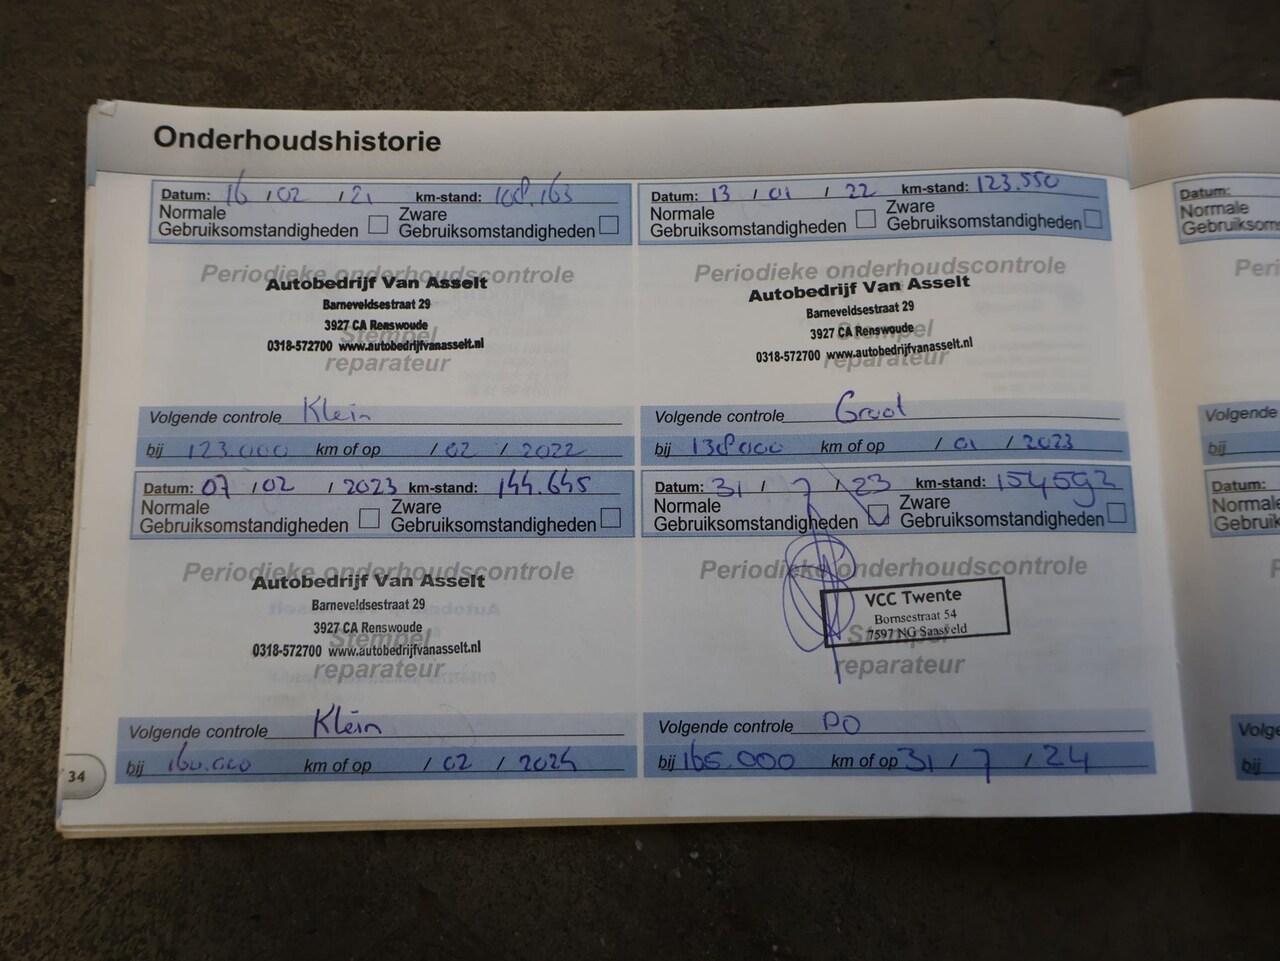 Onderhoudshistorie
Datum: 16 / 02 / 21 km-stand: 108.163
Normale Gebruiksomstandigheden
Zware Gebruiksomstandigheden
Periodieke onderhoudscontrole
Autobedrijf Van Asselt
Barneveldsestraat 29
3927 CA Renswoude
Stempel
0318-572700 www.autobedrijfvanasselt.nl
reparateur
Volgende controle Klein
bij 123.000 km of op / 02 / 2022
Datum: 13 / 01 / 22 km-stand: 123.550
Normale Gebruiksomstandigheden
Zware Gebruiksomstandigheden
Periodieke onderhoudscontrole
Autobedrijf Van Asselt
Barneveldsestraat 29
3927 CA Renswoude
Stempel
0318-572700 www.autobedrijfvanasselt.nl
reparateur
Volgende controle Groot
bij 138000 km of op / 01 / 2023
Datum: 07 / 02 / 2023 km-stand: 144.645
Normale Gebruiksomstandigheden
Zware Gebruiksomstandigheden
Periodieke onderhoudscontrole
Autobedrijf Van Asselt
Barneveldsestraat 29
3927 CA Renswoude
Stempel
0318-572700 www.autobedrijfvanasselt.nl
reparateur
Volgende controle Klein
bij 160.000 km of op / 02 / 2024
Datum: 31 / 7 / 23 km-stand: 154592
Normale Gebruiksomstandigheden
Zware Gebruiksomstandigheden
Periodieke onderhoudscontrole
VCC Twente
Bornsestraat 54
7597 NG Saasveld
Stempel
reparateur
Volgende controle PO
bij 165.000 km of op 31 / 7 / 24
34
Datum:
Normale
Volgende
bij
Datum:
Normale
bij